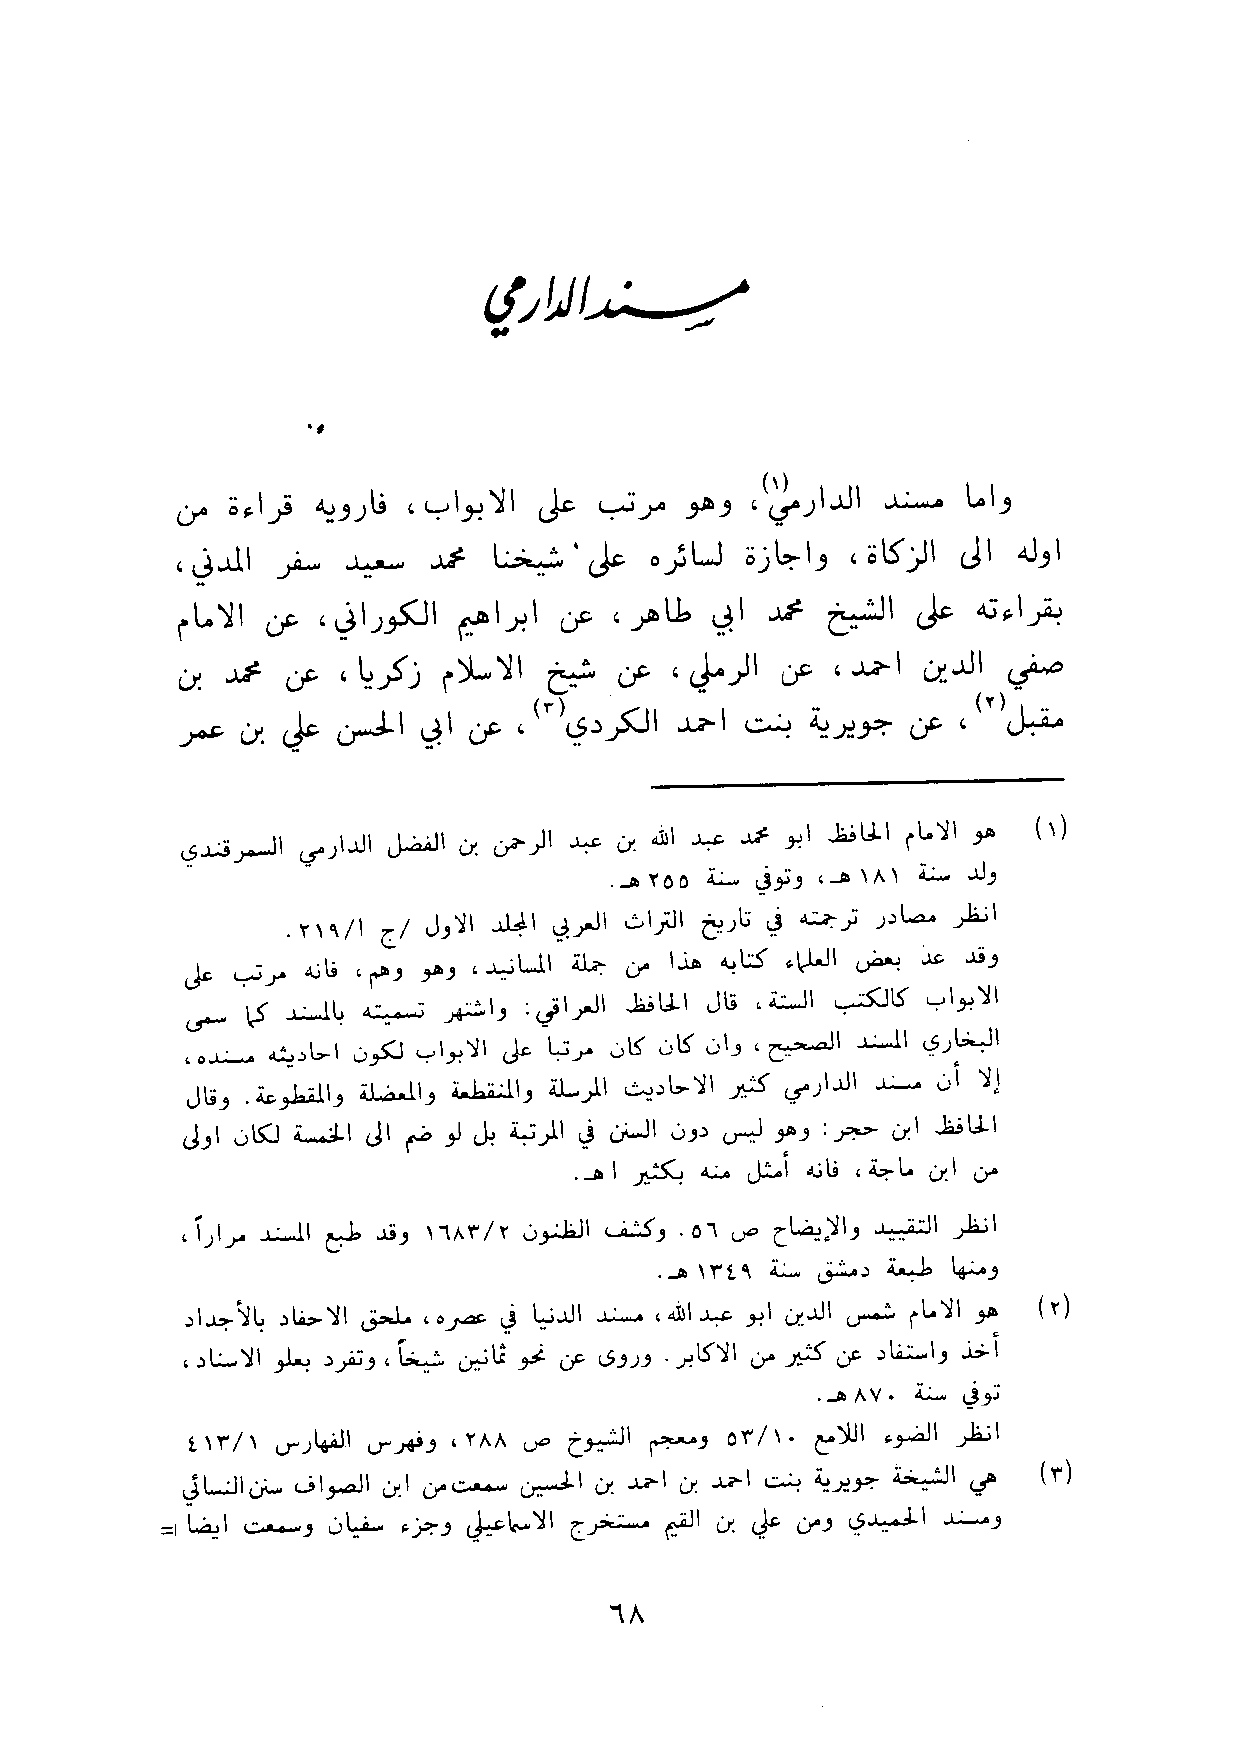 مسند الدارمي
واما مسند الدارمي(١)، وهو مرتب على الابواب، فارويه قراءة من
اوله الى الزكاة، واجازة لسائره على شيخنا محمد سعيد سفر المدني،
بقراءته على الشيخ محمد ابي طاهر، عن ابراهيم الكوراني، عن الامام
صفي الدين احمد، عن الرملي، عن شيخ الاسلام زكريا، عن محمد بن
مقبل(٢)، عن جويرية بنت احمد الكردي(٣)، عن ابي الحسن علي بن عمر
(١) هو الامام الحافظ ابو محمد عبد الله بن عبد الرحمن بن الفضل الدارمي السمرقندي
ولد سنة ١٨١ هـ، وتوفي سنة ٢٥٥ هـ.
انظر مصادر ترجمته في تاريخ التراث العربي المجلد الاول /ج ٢١٩/١.
وقد عد بعض العلماء كتابه هذا من جملة المسانيد، وهو وهم، فانه مرتب على
الابواب كالكتب الستة، قال الحافظ العراقي: واشتهر تسميته بالمسند كما سمى
البخاري المسند الصحيح، وان كان كان مرتبا على الابواب لكون احاديثه مسنده،
إلا أن مسند الدارمي كثير الاحاديث المرسلة والمنقطعة والمعضلة والمقطوعة. وقال
الحافظ ابن حجر: وهو ليس دون السنن في المرتبة بل لو ضم الى الخمسة لكان اولى
من ابن ماجة، فانه أمثل منه بكثير اهـ.
انظر التقييد والإيضاح ص ٥٦. وكشف الظنون ١٦٨٣/٢ وقد طبع المسند مراراً،
ومنها طبعة دمشق سنة ١٣٤٩ هـ.
(٢) هو الامام شمس الدين ابو عبد الله، مسند الدنيا في عصره، ملحق الاحفاد بالأجداد
أخذ واستفاد عن كثير من الاكابر. وروى عن نحو ثمانين شيخاً، وتفرد بعلو الاسناد،
توفي سنة ٨٧٠ هـ.
انظر الضوء اللامع ٥٣/١٠ ومعجم الشيوخ ص ٢٨٨، وفهرس الفهارس ٤١٣/١
(٣) هي الشيخة جويرية بنت احمد بن احمد بن الحسين سمعت من ابن الصواف سنن النسائي
ومسند الحميدي ومن علي بن القيم مستخرج الاسماعيلي وجزء سفيان وسمعت ايضا =
٦٨